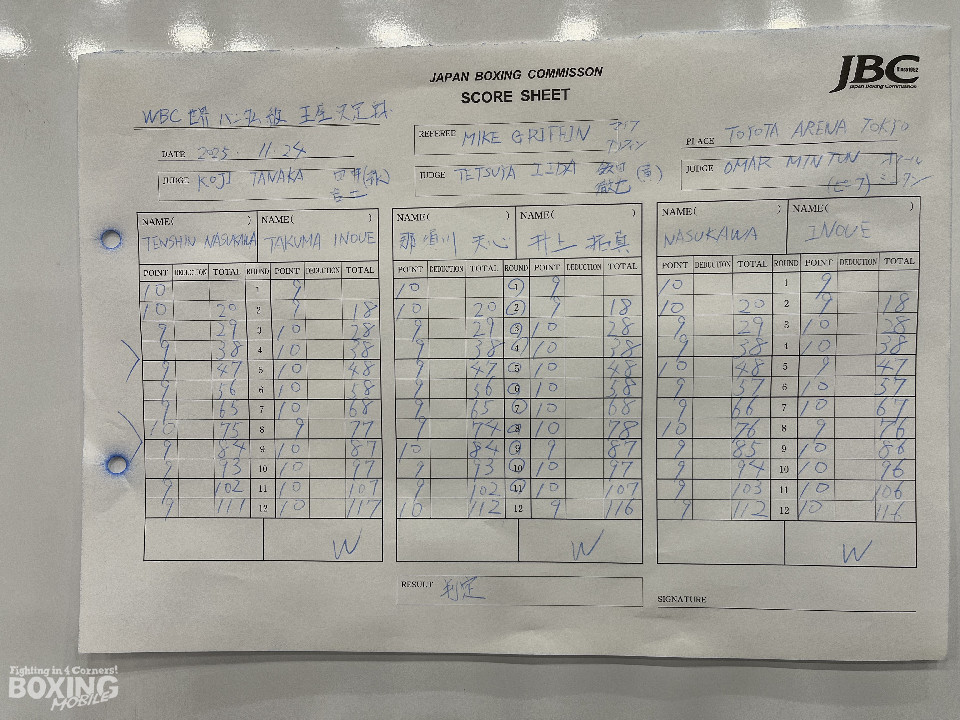 JAPAN BOXING COMMISSON
SCORE SHEET
JBC Since1952
Japan Boxing Commission
WBC 世界バンタム級 王座決定戦
DATR 2025. 11.24
REFERED MIKE GRIFFIN マイク グリフィン
PLACE TOYOTA ARENA TOKYO
JUDGE KOJI TANAKA 田中
JUDGE TETSUYA IIDA 飯田
JUDGE OMAR MINTUN オマール ミンタン
NAME( ) NAME( ) NAME( ) NAME( ) NAME( ) NAME( )
TENSHIN NASUKAWA TAKUMA INOUE 那須川 天心 井上 拓真 NASUKAWA INOUE
POINT DEDUCTION TOTAL ROUND POINT DEDUCTION TOTAL POINT DEDUCTION TOTAL ROUND POINT DEDUCTION TOTAL POINT DEDUCTION TOTAL ROUND POINT DEDUCTION TOTAL
10 1 9 10 1 9 10 1 9
10 20 2 9 18 10 20 2 9 18 10 20 2 9 18
9 29 3 10 28 9 29 3 10 28 9 29 3 10 28
9 38 4 10 38 9 38 4 10 38 9 38 4 10 38
9 47 5 10 48 9 47 5 10 48 10 48 5 9 47
9 56 6 10 58 9 56 6 10 58 9 57 6 10 57
9 65 7 10 68 9 65 7 10 68 9 66 7 10 67
10 75 8 9 77 9 74 8 10 78 10 76 8 9 76
9 84 9 10 87 10 84 9 9 87 9 85 9 10 86
9 93 10 10 97 9 93 10 10 97 9 94 10 10 96
9 102 11 10 107 9 102 11 10 107 9 103 11 10 106
9 111 12 10 117 10 112 12 9 116 9 112 12 10 116
W W W
RESULT 判定
SIGNATURE
Fighting in 4 Corners!
BOXING
MOBILE